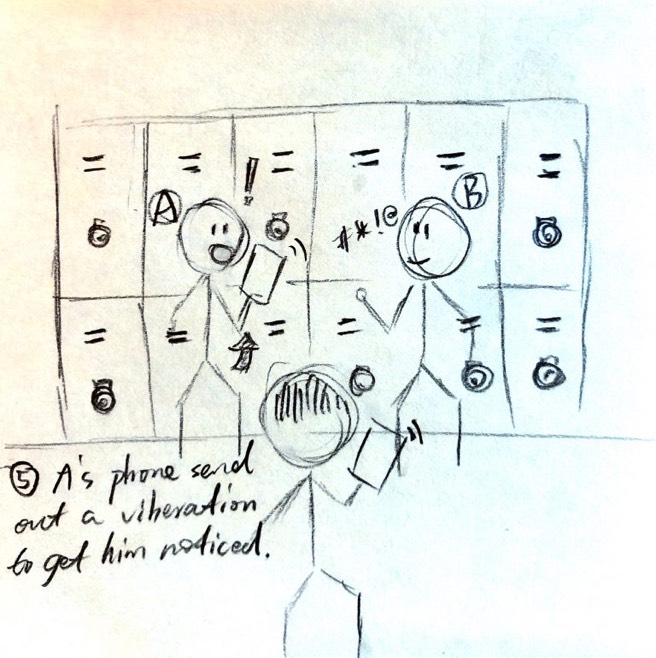 A
!
#*!@
B
⑤ A's phone send
out a viberation
to get him noticed.